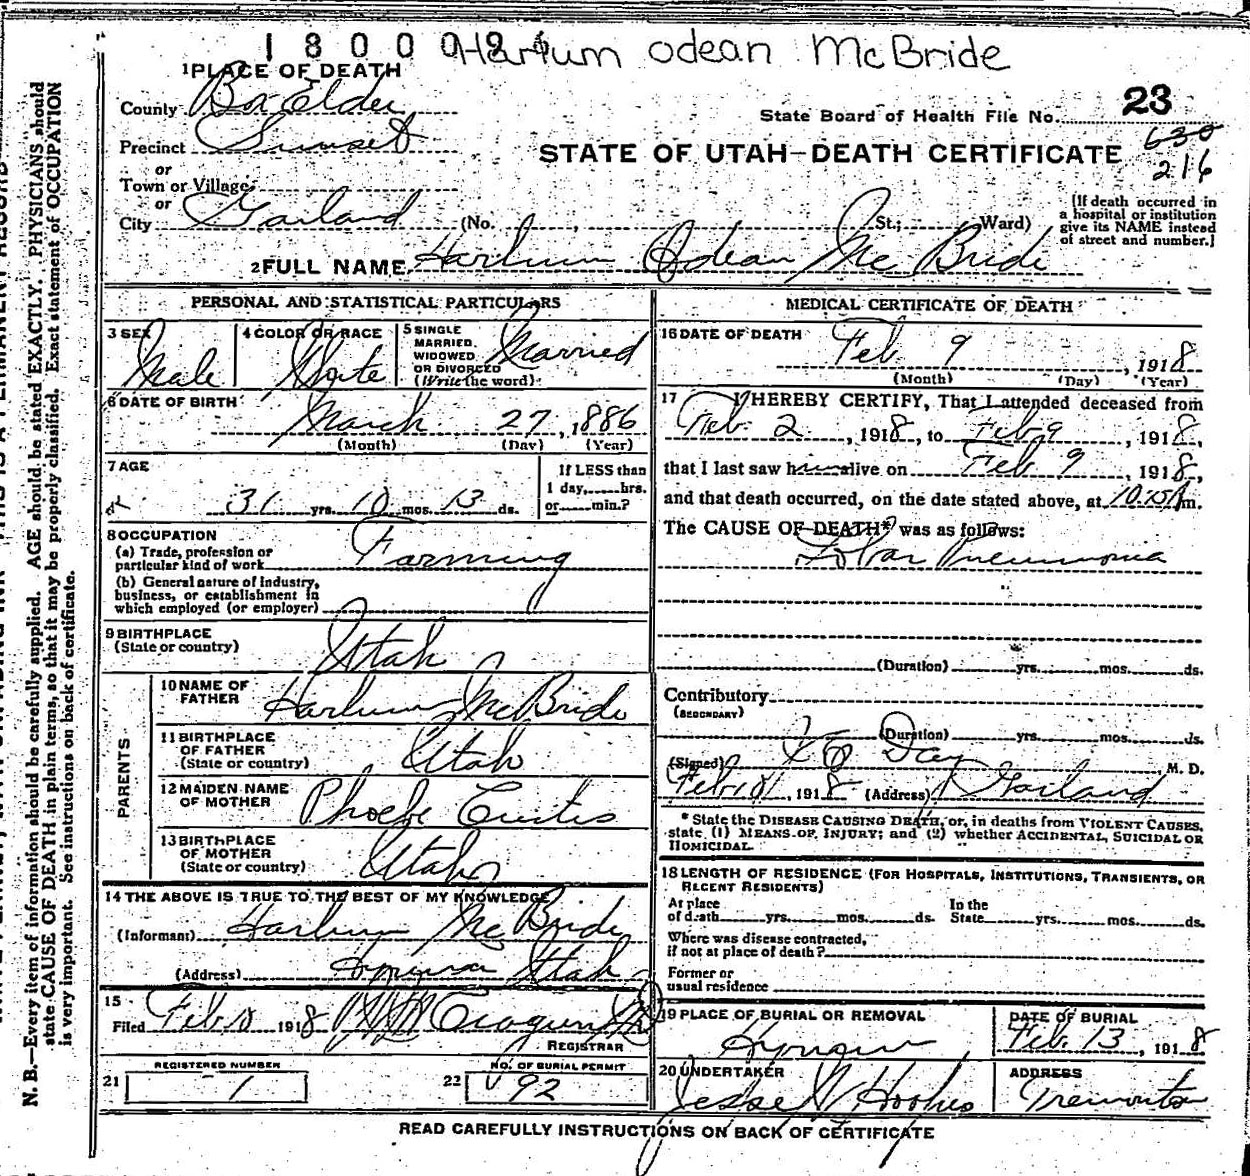 1 8 0 0 0 Harlum Odean McBride
1 PLACE OF DEATH
County Box Elder
State Board of Health File No. 23
Precinct Sunset
STATE OF UTAH—DEATH CERTIFICATE 630
216
or
Town or Village
or
City Garland (No. , St.; Ward)
[If death occurred in
a hospital or institution
give its NAME instead
of street and number.]
2 FULL NAME Harlum Odean McBride
PERSONAL AND STATISTICAL PARTICULARS
3 SEX
Male
4 COLOR OR RACE
White
5 SINGLE
MARRIED,
WIDOWED
OR DIVORCED
(Write the word)
Married
6 DATE OF BIRTH
March 27, 1886
(Month) (Day) (Year)
7 AGE
31 yrs. 10 mos. 13 ds.
If LESS than
1 day,......hrs.
or......min.?
8 OCCUPATION
(a) Trade, profession or
particular kind of work Farming
(b) General nature of industry,
business, or establishment in
which employed (or employer)
9 BIRTHPLACE
(State or country) Utah
PARENTS
10 NAME OF
FATHER Harlum McBride
11 BIRTHPLACE
OF FATHER
(State or country) Utah
12 MAIDEN NAME
OF MOTHER Phoebe Curtis
13 BIRTHPLACE
OF MOTHER
(State or country) Utah
14 THE ABOVE IS TRUE TO THE BEST OF MY KNOWLEDGE
(Informant) Harlum McBride
(Address) Utah
15
Filed Feb 10 1918
REGISTRAR
REGISTERED NUMBER
21 1
NO. OF BURIAL PERMIT
22 92
MEDICAL CERTIFICATE OF DEATH
16 DATE OF DEATH
Feb 9, 1918
(Month) (Day) (Year)
17 I HEREBY CERTIFY, That I attended deceased from
Feb. 2, 1918, to Feb 9, 1918,
that I last saw h alive on Feb. 9, 1918,
and that death occurred, on the date stated above, at m.
The CAUSE OF DEATH* was as follows:
Lobar Pneumonia
(Duration) yrs. mos. ds.
Contributory
(SECONDARY)
(Duration) yrs. mos. ds.
(Signed) Day, M. D.
Feb 10, 1918 (Address) Garland
* State the DISEASE CAUSING DEATH, or, in deaths from VIOLENT CAUSES,
state (1) MEANS OF INJURY; and (2) whether ACCIDENTAL, SUICIDAL OR
HOMICIDAL.
18 LENGTH OF RESIDENCE (FOR HOSPITALS, INSTITUTIONS, TRANSIENTS, OR
RECENT RESIDENTS)
At place
of death yrs. mos. ds.
In the
State yrs. mos. ds.
Where was disease contracted,
if not at place of death?
Former or
usual residence
19 PLACE OF BURIAL OR REMOVAL
DATE OF BURIAL
Feb. 13, 1918
20 UNDERTAKER
Jesse W
ADDRESS
Tremonton
READ CAREFULLY INSTRUCTIONS ON BACK OF CERTIFICATE
N. B.—Every item of information should be carefully supplied. AGE should be stated EXACTLY. PHYSICIANS should
state CAUSE OF DEATH in plain terms, so that it may be properly classified. Exact statement of OCCUPATION
is very important. See instructions on back of certificate.